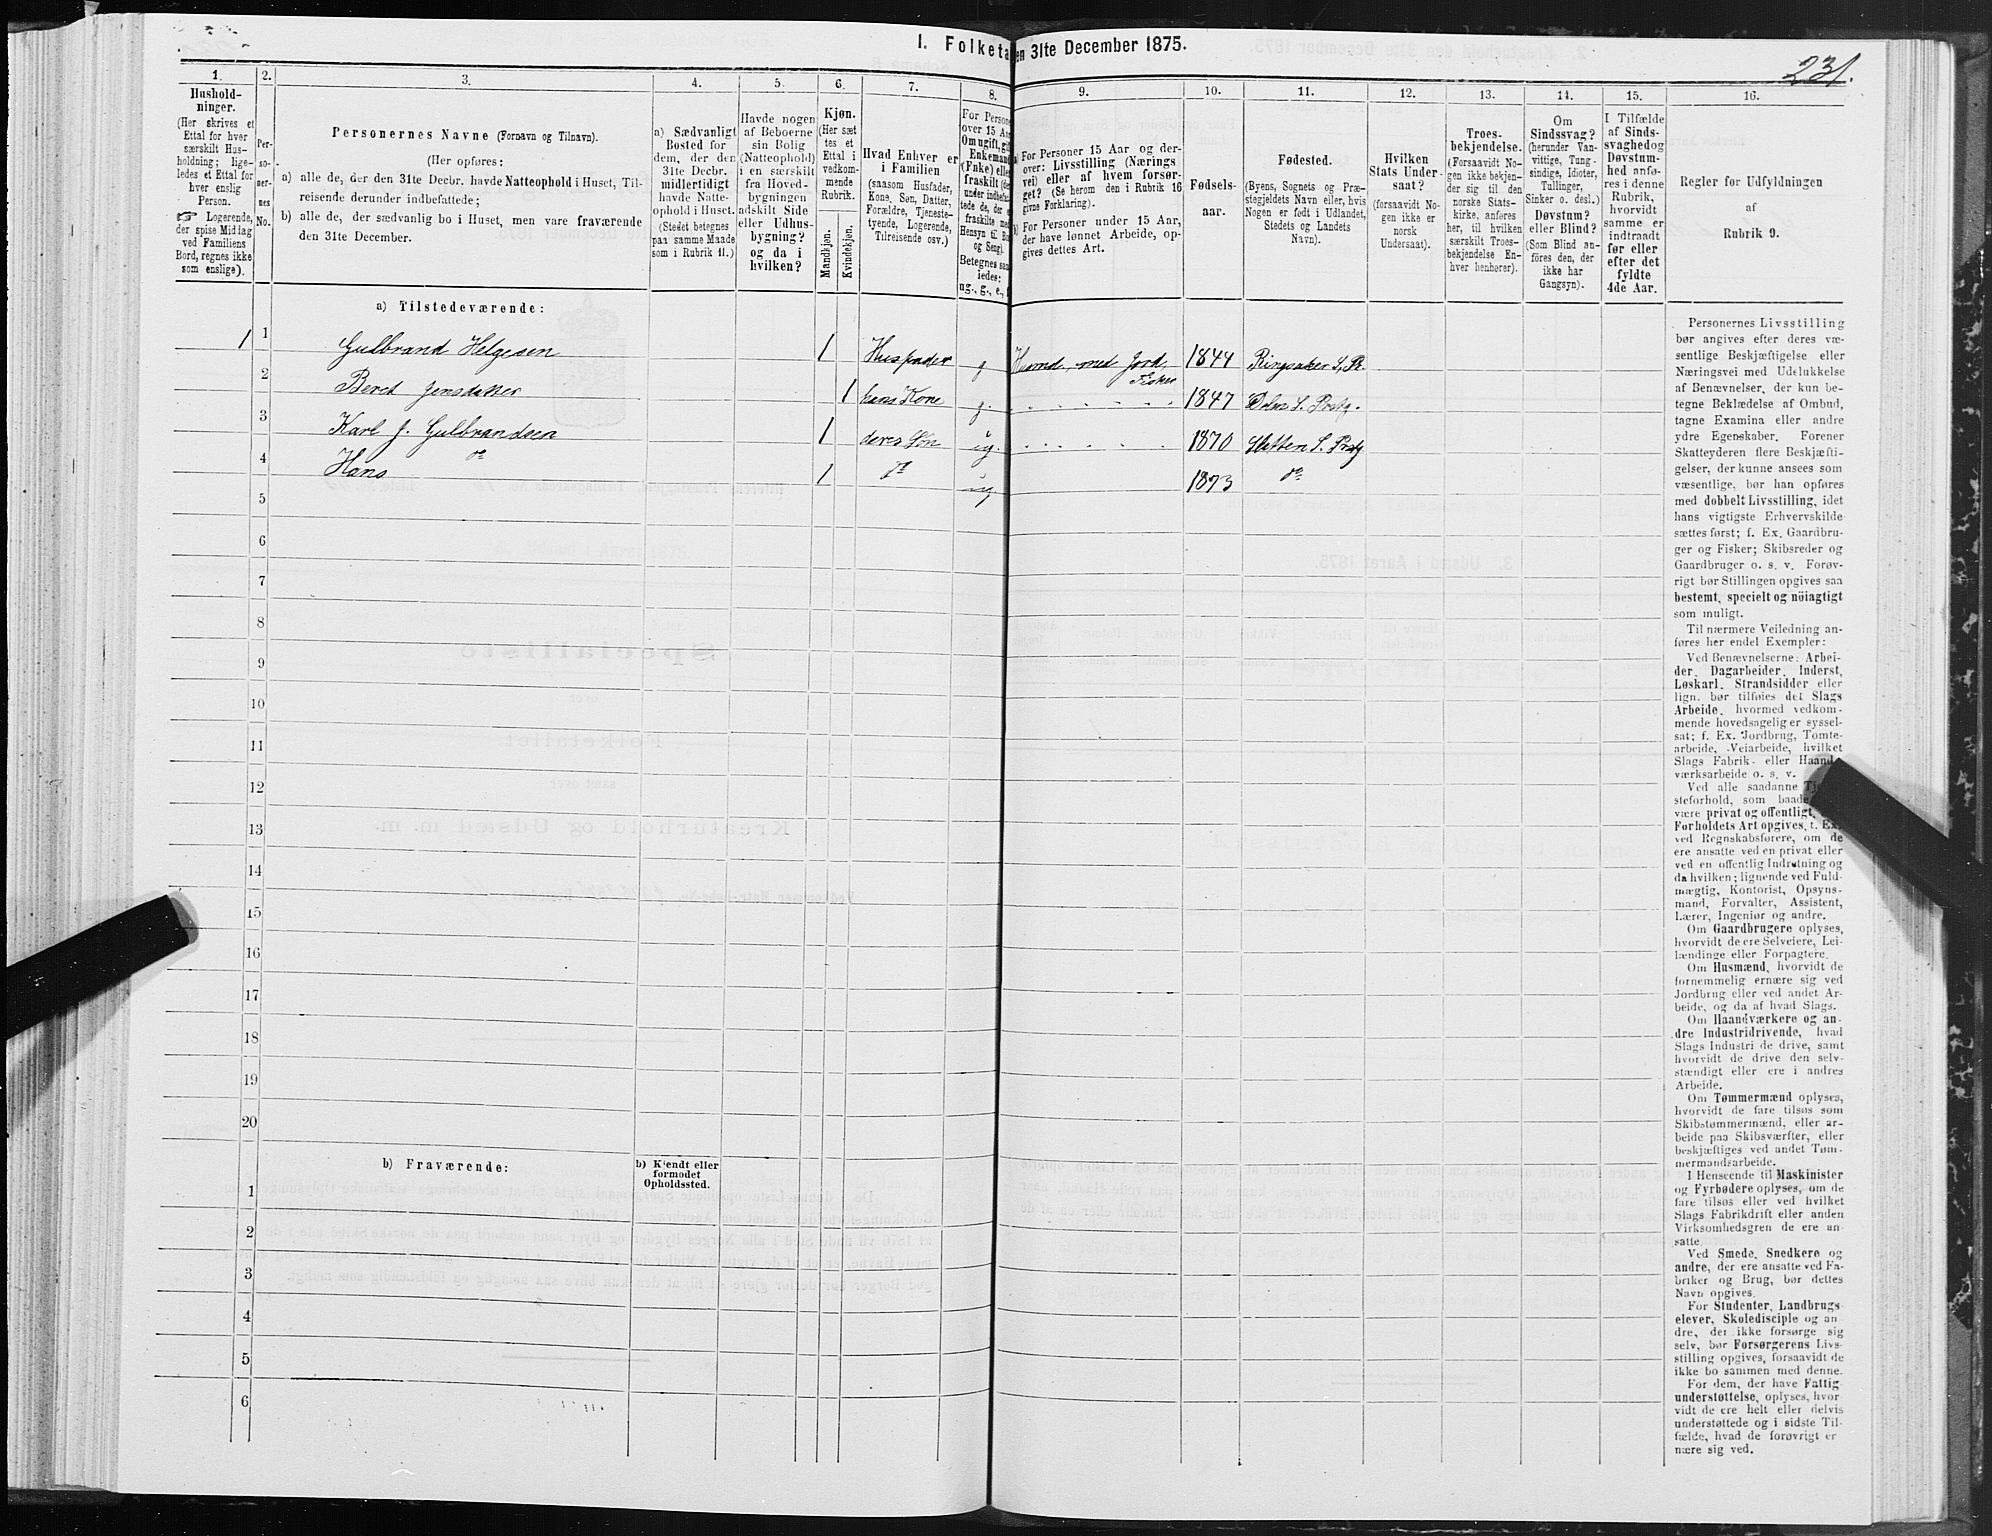 I. Folketa
en 31te December 1875.
231.
1.
Hushold-
ninger.
(Her skrives et
Ettal for hver
særskilt Hus-
holdning; lige-
ledes et Ettal for
hver enslig
Person.
☞ Logerende,
der spise Middag
ved Familiens
Bord, regnes ikke
som enslige).
2.
Per-
so-
ner-
nes
No.
3.
Personernes Navne (Fornavn og Tilnavn).
(Her opføres:
a) alle de, der den 31te Decbr. havde Natteophold i Huset, Til-
reisende derunder indbefattede;
b) alle de, der sædvanlig bo i Huset, men vare fraværende
den 31te December.
4.
a) Sædvanligt
Bosted for
dem, der den
31te Decbr.
midlertidigt
havde Natte-
ophold i Huset.
(Stedet betegnes
paa samme Maade
som i Rubrik 11.)
5.
Havde nogen
af Beboerne
sin Bolig
(Natteophold)
i en særskilt
fra Hoved-
bygningen
adskilt Side
eller Udhus-
bygning?
og da i
hvilken?
6.
Kjøn.
(Her sæt
tes et
Ettal i
vedkom-
mende
Rubrik.
Mandkjøn.
Kvindekjøn.
7.
Hvad Enhver er
i Familien
(saasom Husfader,
Kone, Søn, Datter,
Forældre, Tjeneste-
tyende, Logerende,
Tilreisende osv.)
8.
For Persone
over 15 Aa
Om ugift, gif
Enkemand
(Enke) elle
fraskilt (de
under indbefat
tede de, der e
fraskilte me
Hensyn til Bo
og Seng).
Betegnes saa
ledes:
ug., g., e.,
9.
a) For Personer 15 Aar og der-
over: Livsstilling (Nærings
vei) eller af hvem forsør-
get? (Se herom den i Rubrik 16
givne Forklaring).
b) For Personer under 15 Aar,
der have lønnet Arbeide, op-
gives dettes Art.
10.
Fødsels-
aar.
11.
Fødested.
(Byens, Sognets og Præ-
stegjeldets Navn eller, hvis
Nogen er født i Udlandet,
Stedets og Landets
Navn).
12.
Hvilken
Stats Under-
saat?
(forsaavidt No-
gen ikke er
norsk
Undersaat).
13.
Troes-
bekjendelse.
(Forsaavidt No-
gen ikke bekjen-
der sig til den
norske Stats-
kirke, anføres
her, til hvilken
særskilt Troes-
bekjendelse En-
hver henhører).
14.
Om
Sindssvag?
(herunder Van-
vittige, Tung-
sindige, Idioter,
Tullinger,
Sinker o. desl.)
Døvstum?
eller Blind?
(Som Blind an-
føres den, der
ikke har
Gangsyn).
15.
I Tilfælde
af Sinds-
svaghedog
Døvstum-
hed anfø-
res i denne
Rubrik,
hvorvidt
samme er
indtraadt
før eller
efter det
fyldte
4de Aar.
16.
Regler for Udfyldningen
af
Rubrik 9.
a) Tilstedeværende:
1 1 Gulbrand Helgesen 1 Husfader g Husmd. med Jord, Fisker 1844 Ringsaker S. Pr.
2 Beret Jensdatter 1 hans Kone g. 1847 S. Prstg.
3 Karl J. Gulbrandsen 1 deres Søn ug. 1870 S. Prstg
4 Hans do 1 do ug 1873 do
5
6
7
8
9
10
11
12
13
14
15
16
17
18
19
20
b) Fraværende:
b) Kjendt eller
formodet
Opholdssted.
1
2
3
4
5
6
Personernes Livsstilling
bør angives efter deres væ-
sentlige Beskjæftigelse eller
Næringsvei med Udelukkelse
af Benævnelser, der kun be-
tegne Beklædelse af Ombud,
tagne Examina eller andre
ydre Egenskaber. Forener
Skatteyderen flere Beskjæfti-
gelser, der kunne ansees som
væsentlige, bør han opføres
med dobbelt Livsstilling, idet
hans vigtigste Erhvervskilde
sættes først; f. Ex. Gaardbru-
ger og Fisker; Skibsreder og
Gaardbruger o. s. v. Forøv-
rigt bør Stillingen opgives saa
bestemt, specielt og nöiagtigt
som muligt.
Til nærmere Veiledning an-
føres her endel Exempler:
Ved Benævnelserne: Arbei-
der, Dagarbeider, Inderst,
Løskarl, Strandsidder eller
lign. bør tilføies det Slags
Arbeide, hvormed vedkom-
mende hovedsagelig er syssel-
sat; f. Ex. Jordbrug, Tomte-
arbeide, Veiarbeide, hvilket
Slags Fabrik- eller Haand-
værksarbeide o. s. v.
Ved alle saadanne Tj
steforhold, som baade
være privat og offentligt,
Forholdets Art opgives, t. Ex.
ved Regnskabsførere, om de
ere ansatte ved en privat eller
ved en offentlig Indretning og
da hvilken; lignende ved Fuld-
mægtig, Kontorist, Opsyns-
mand, Forvalter, Assistent,
Lærer, Ingeniør og andre.
Om Gaardbrugere oplyses,
hvorvidt de ere Selveiere, Lei-
lændinge eller Forpagtere.
Om Husmænd, hvorvidt de
fornemmelig ernære sig ved
Jordbrug eller ved andet Ar-
beide, og da af hvad Slags.
Om Haandværkere og an-
dre Industridrivende, hvad
Slags Industri de drive, samt
hvorvidt de drive den selv-
stændigt eller ere i andres
Arbeide.
Om Tømmermænd oplyses,
hvorvidt de fare tilsøs som
Skibstømmermænd, eller ar-
beide paa Skibsværfter, eller
beskjæftiges ved andet Tøm-
mermandsarbeide.
I Henseende til Maskinister
og Fyrbødere oplyses, om de
fare tilsøs eller ved hvilket
Slags Fabrikdrift eller anden
Virksomhedsgren de ere an-
satte.
Ved Smede, Snedkere og
andre, der ere ansatte ved Fa-
briker og Brug, bør dettes
Navn opgives.
For Studenter, Landbrugs-
elever, Skoledisciple og an-
dre, der ikke forsørge sig
selv, bør Forsørgerens Livs-
stilling opgives, forsaavidt de
ikke bo sammen med denne.
For dem, der have Fattig-
understøttelse, oplyses, hvor
vidt de ere helt eller delvis
understøttede og i sidste Til-
fælde, hvad de forøvrigt er
nære sig ved.